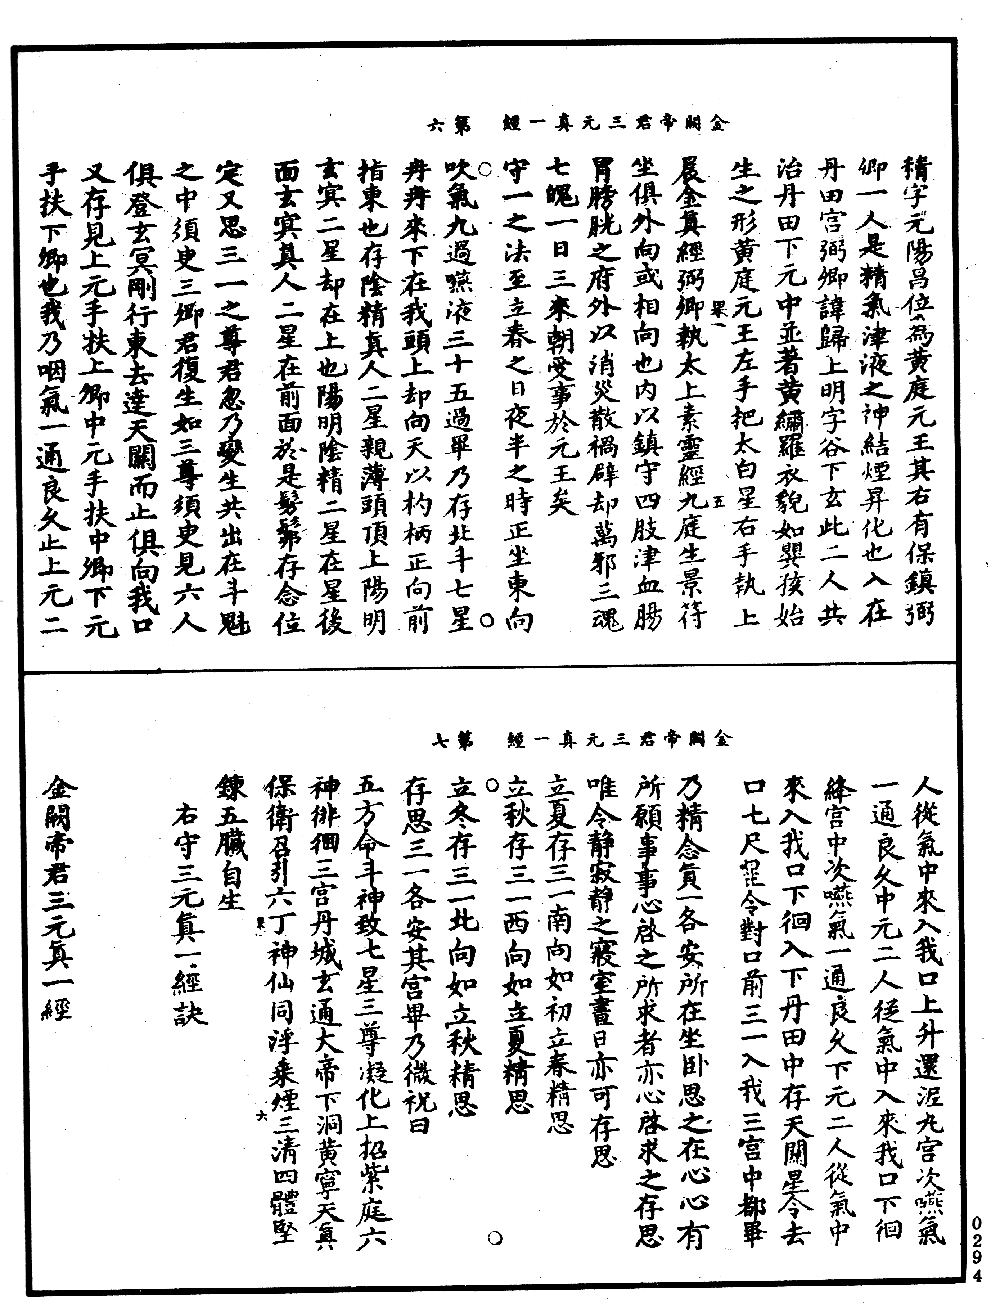 金闕帝君三元真一經　第六
精字元陽昌位為黃庭元王其右有保鎮弼
卿一人是精氣津液之神結煙昇化也入在
丹田宮弼卿諱歸上明字谷下玄此二人共
治丹田下元中並著黃繡羅衣貌如嬰孩始
生之形黃庭元王左手把太白星右手執上
晨金真經弼卿執太上素靈經九庭生景符
坐俱外向或相向也內以鎮守四肢津血腸
胃膀胱之府外以消災散禍辟却萬邪三魂
七魄一日三來朝受事於元王矣
守一之法至立春之日夜半之時正坐東向
吹氣九過嚥液三十五過畢乃存北斗七星
冉冉來下在我頭上却向天以杓柄正向前
指東也存陰精真人二星親薄頭頂上陽明
玄冥二星却在上也陽明陰精二星在星後
面玄冥真人二星在前面於是髣髴存念位
定又思三一之尊君忽乃變生共出在斗魁
之中須臾三卿君復生如三尊須臾見六人
俱登玄冥剛行東去達天關而止俱向我口
又存見上元手扶上卿中元手扶中卿下元
手扶下卿也我乃咽氣一通良久止上元二
金闕帝君三元真一經　第七
人從氣中來入我口上升還泥丸宮次嚥氣
一通良久中元二人從氣中入來我口下徊
絳宮中次嚥氣一通良久下元二人從氣中
來入我口下徊入下丹田中存天關星令去
口七尺星令對口前三一入我三宮中都畢
乃精念真一各安所在坐卧思之在心心有
所願事事心啓之所求者亦心啓求之存思
唯令靜寂靜之寢室晝日亦可存思
立夏存三一南向如初立春精思
立秋存三一西向如立夏精思
立冬存三一北向如立秋精思
存思三一各安其宮畢乃微祝曰
五方命斗神致七星三尊凝化上招紫庭六
神徘徊三宮丹城玄通大帝下洞黃寧天真
保衛召引六丁神仙同浮乘煙三清四體堅
鍊五臟自生
右守三元真一經訣
金闕帝君三元真一經
0294